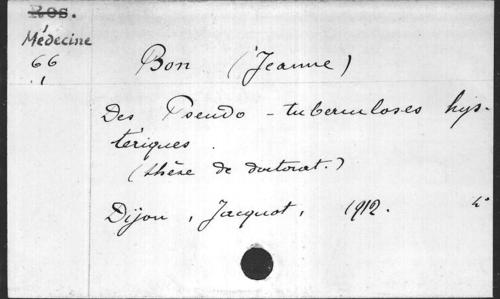 Ros.
Médecine
66
1
Bon (Jeanne)
Des Pseudo-tuberculoses hys-
tériques.
(thèse de doctorat.)
Dijon, Jacquot, 1912. 4°